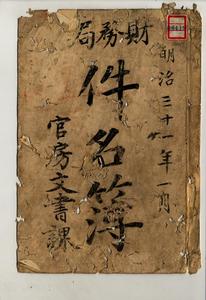 財務局
明治三十一年一月
件名簿
官房文書課